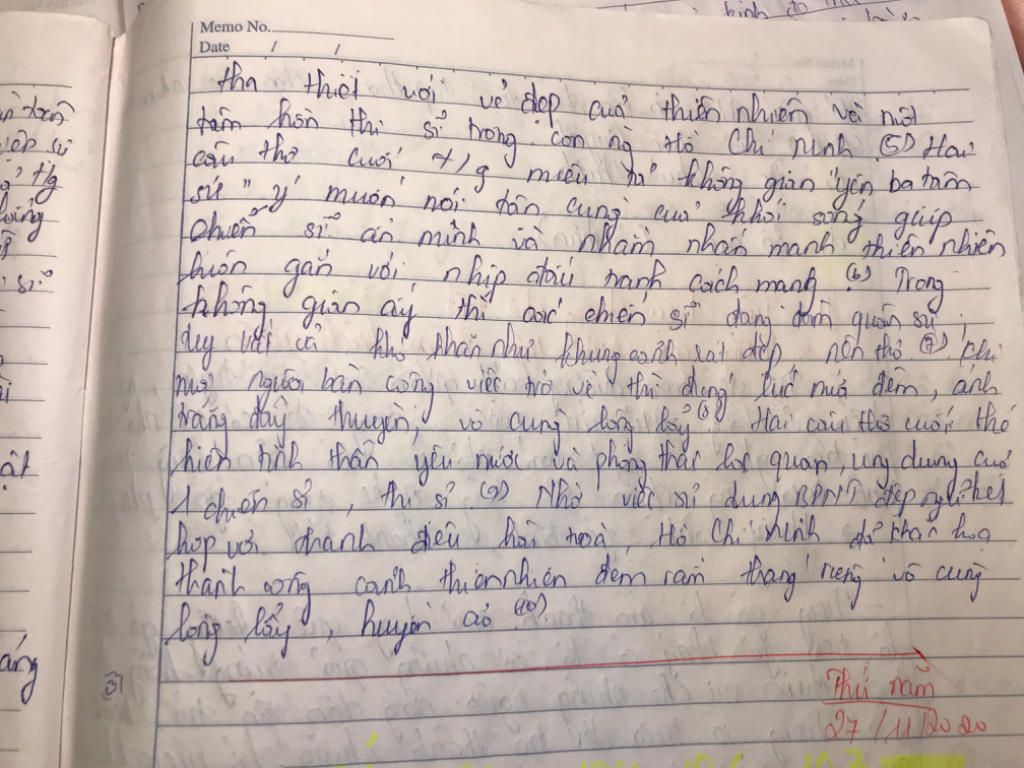 Memo No.
Date / /
tha thiết với vẻ đẹp của thiên nhiên và một
tâm hồn thi sĩ trong con ng Hồ Chí Minh (5) Hai
câu thơ cuối t/g miêu tả không gian "yên ba thâm
sứ" ý muốn nói tận cùng của khói sóng giúp
chiến sĩ ẩn mình và nhằm nhấn mạnh thiên nhiên
luôn gắn với nhịp đấu tranh cách mạng (6) Trong
không gian ấy thì các chiến sĩ đang đàm quân sự,
tuy vất vả khó khăn như khung cảnh rất đẹp nên thơ (7) Khi
mọi người bàn công việc trở về thì đúng lúc nửa đêm, ánh
trăng đầy thuyền, vô cùng lộng lẫy (8) Hai câu thơ cuối thể
hiện tinh thần yêu nước và phong thái lạc quan, ung dung của
1 chiến sĩ, thi sĩ (9) Nhờ việc sử dụng BPNT điệp ngữ kết
hợp với thanh điệu hài hoà, Hồ Chí Minh đã khắc hoạ
thành công cảnh thiên nhiên đêm rằm tháng riêng vô cùng
lộng lẫy, huyền ảo (10)
Thứ năm
27/11/2020